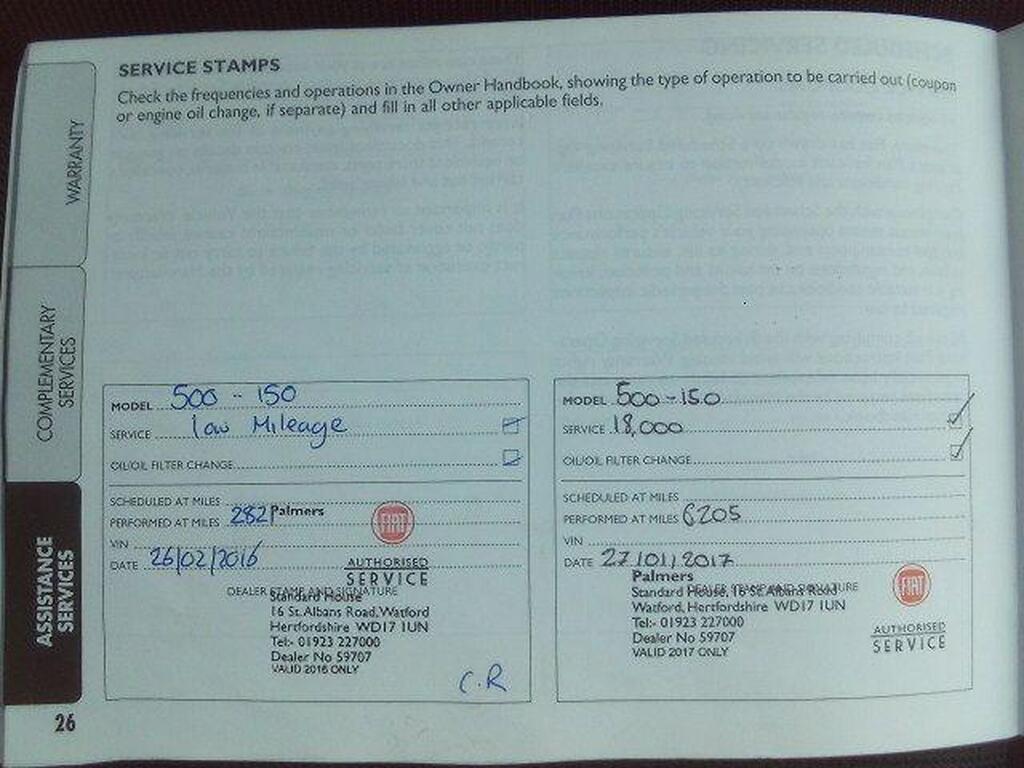 SERVICE STAMPS
Check the frequencies and operations in the Owner Handbook, showing the type of operation to be carried out (coupon
or engine oil change, if separate) and fill in all other applicable fields.
WARRANTY
COMPLEMENTARY
SERVICES
ASSISTANCE
SERVICES
MODEL 500 - 150
SERVICE low Mileage
OIL/OIL FILTER CHANGE
SCHEDULED AT MILES
PERFORMED AT MILES 2821
VIN
DATE 26/02/2016
DEALER STAMP AND SIGNATURE
Palmers
FIAT
AUTHORISED
SERVICE
Standard House
16 St. Albans Road, Watford
Hertfordshire WD17 1UN
Tel:- 01923 227000
Dealer No 59707
VALID 2016 ONLY
C.R
MODEL 500-150
SERVICE 18,000
OIL/OIL FILTER CHANGE
SCHEDULED AT MILES
PERFORMED AT MILES 6205
VIN
DATE 27/01/2017
DEALER STAMP AND SIGNATURE
Palmers
Standard House, 16 St. Albans Road
Watford, Hertfordshire WD17 1UN
Tel:- 01923 227000
Dealer No 59707
VALID 2017 ONLY
FIAT
AUTHORISED
SERVICE
26